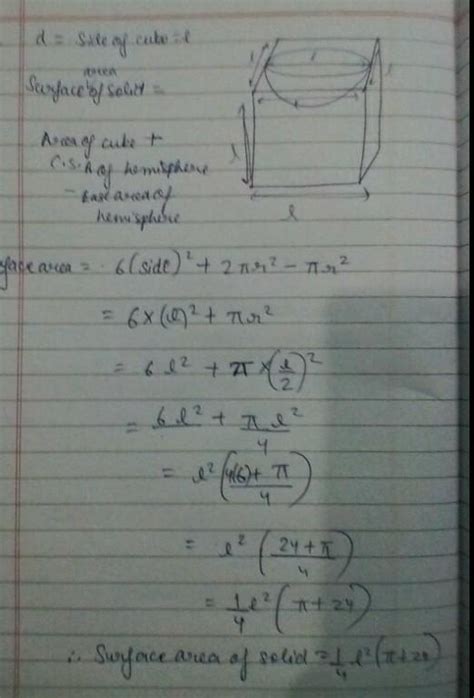 d = Side of cube = l
Surface area of solid =
Area of cube +
C.S.A of hemisphere
- base area of
hemisphere
l
l
face area = 6(side)² + 2πr² - πr²
= 6×(l)² + πr²
= 6l² + π×(l/2)²
= 6l² + πl²/4
= l²(4(6)+π/4)
= l²(24+π/4)
= 1/4 l²(π+24)
∴ Surface area of solid = 1/4 l²(π+24)